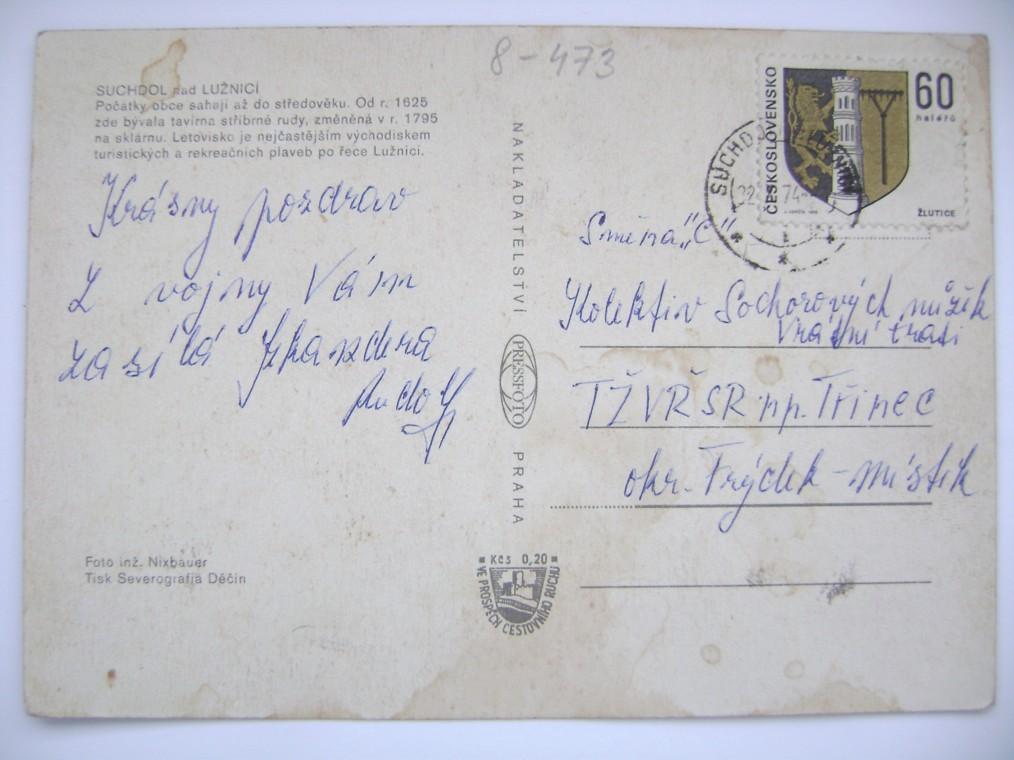 8-473
SUCHDOL nad LUŽNICÍ
Počátky obce sahají až do středověku. Od r. 1625
zde bývala tavírna stříbrné rudy, změněná v r. 1795
na sklárnu. Letovisko je nejčastějším východiskem
turistických a rekreačních plaveb po řece Lužnici.
Krásny pozdrav
z vojny Vám
zasílá
Foto inž. Nixbauer
Tisk Severografia Děčín
NAKLADATELSTVÍ PRESSFOTO PRAHA
Kčs 0,20
VE PROSPĚCH CESTOVNÍHO RUCHU
ČESKOSLOVENSKO
60
haléřů
ŽLUTICE
SUCHDOL
74
Směna „C"
Kolektiv Sochorových
Vrátní trati
TŽVŘSR np. Třinec
okr. Frýdek-místek